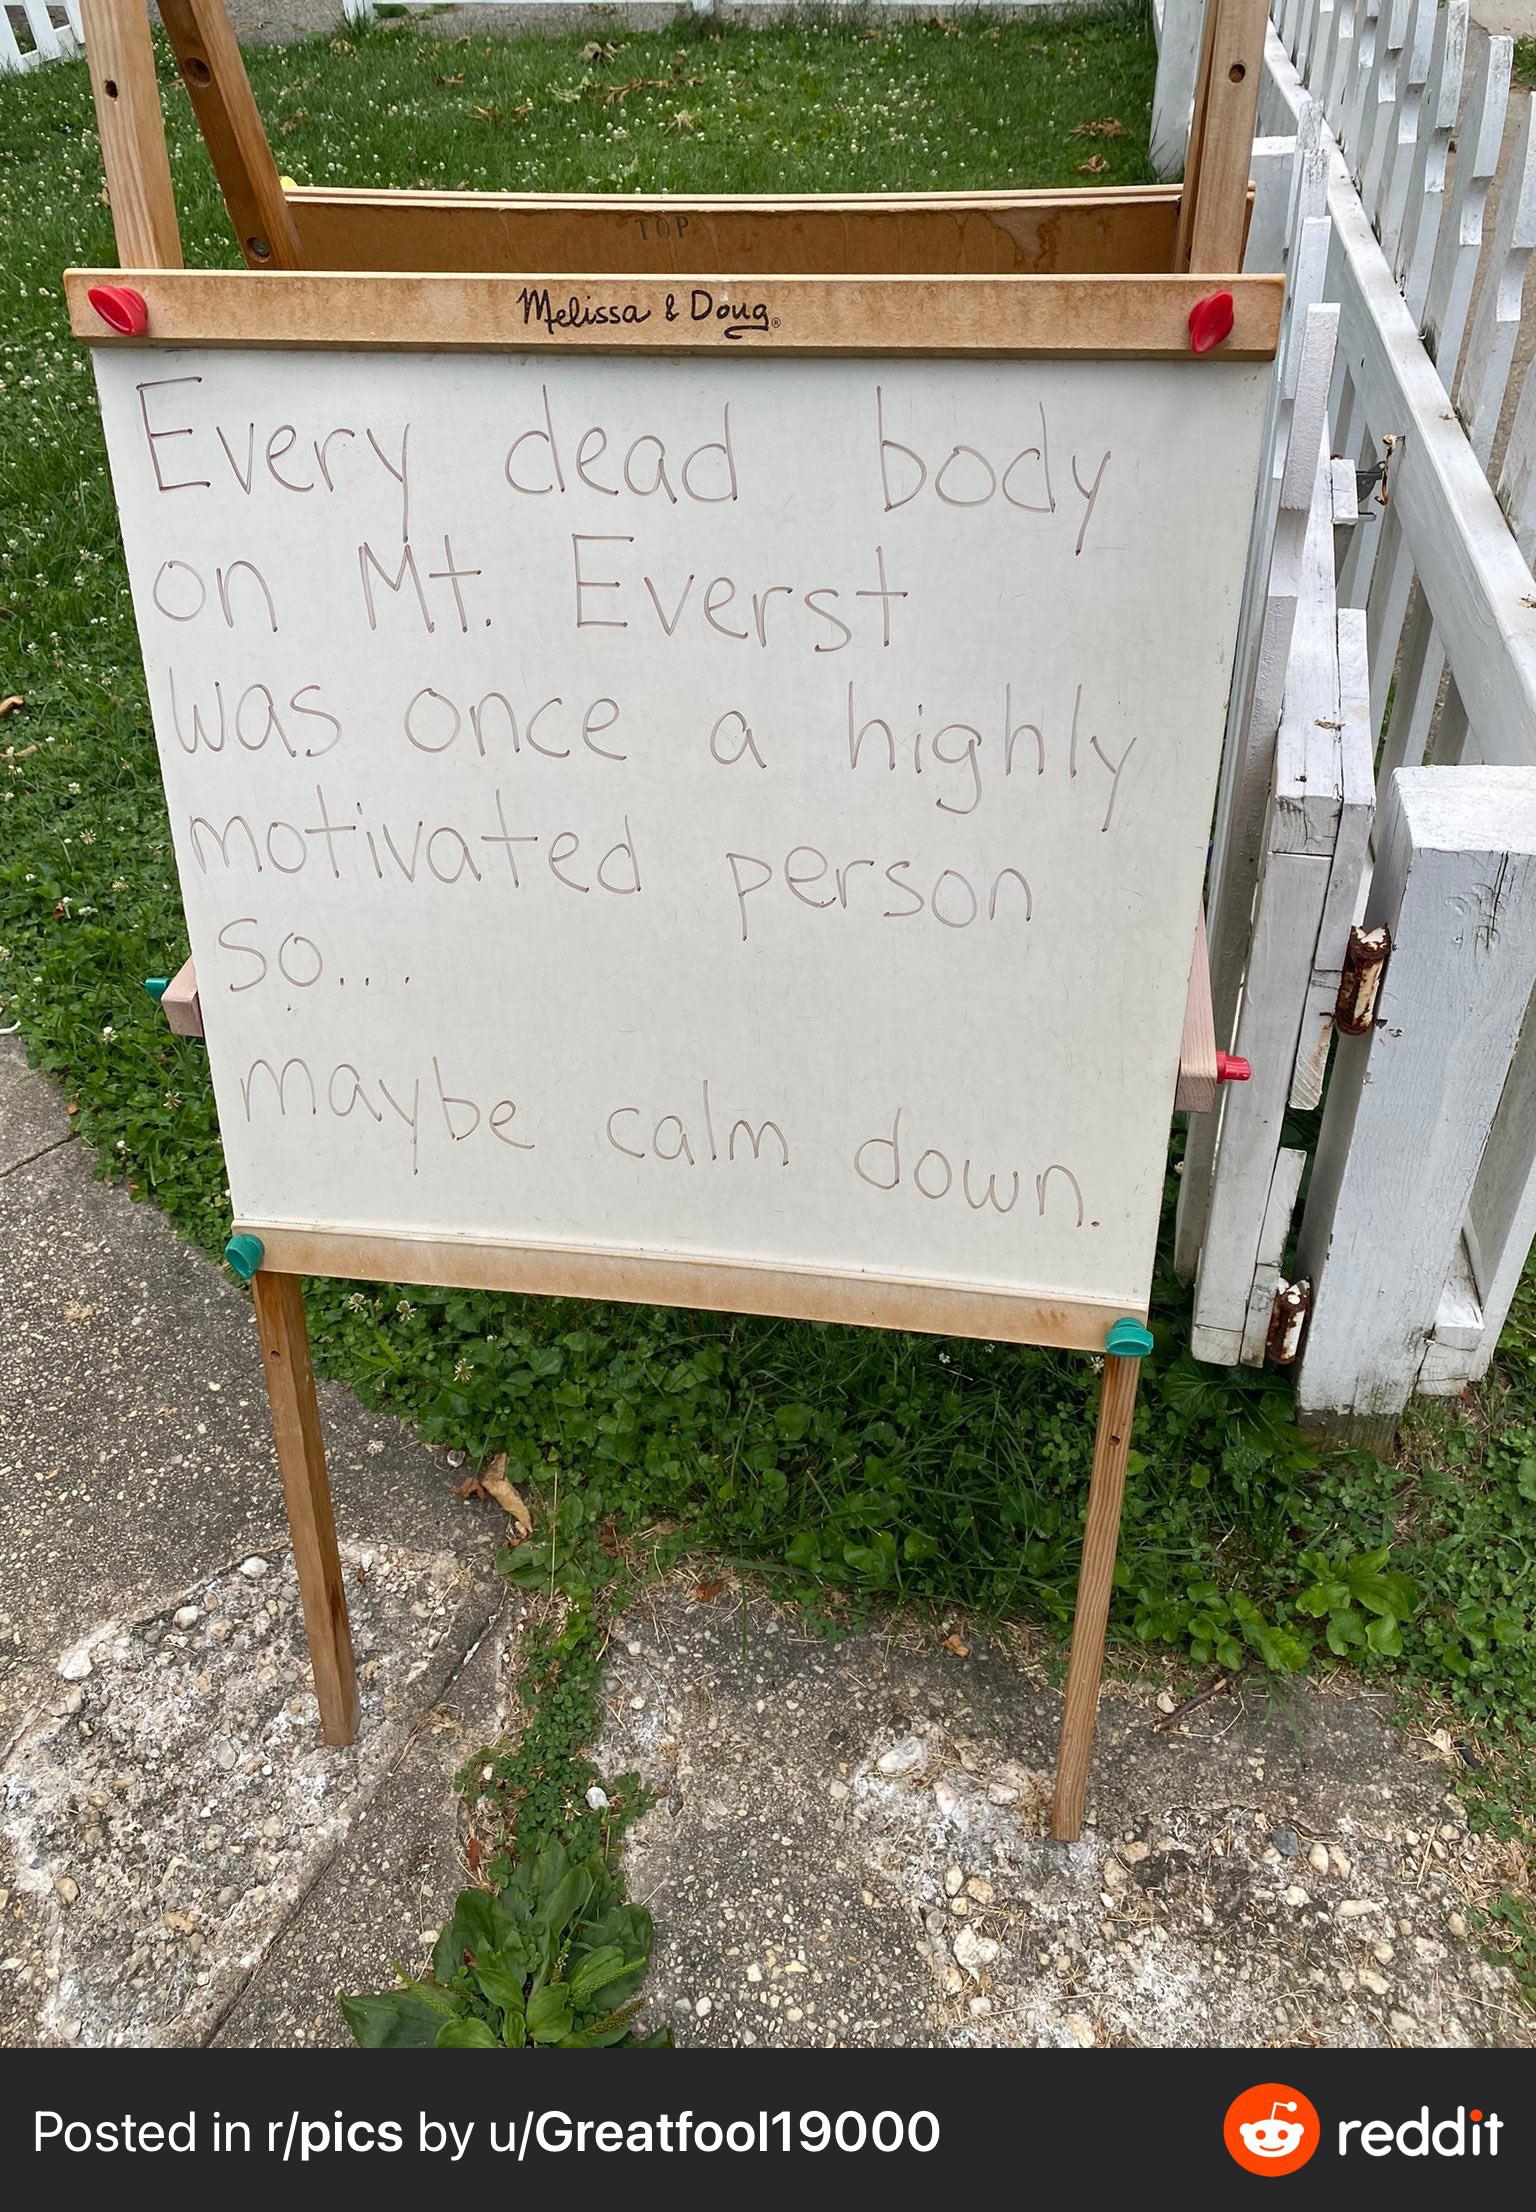 TOP
Melissa & Doug®
Every dead body
on Mt. Everst
was once a highly
motivated person
so...
maybe calm down.
Posted in r/pics by u/Greatfool19000
reddit